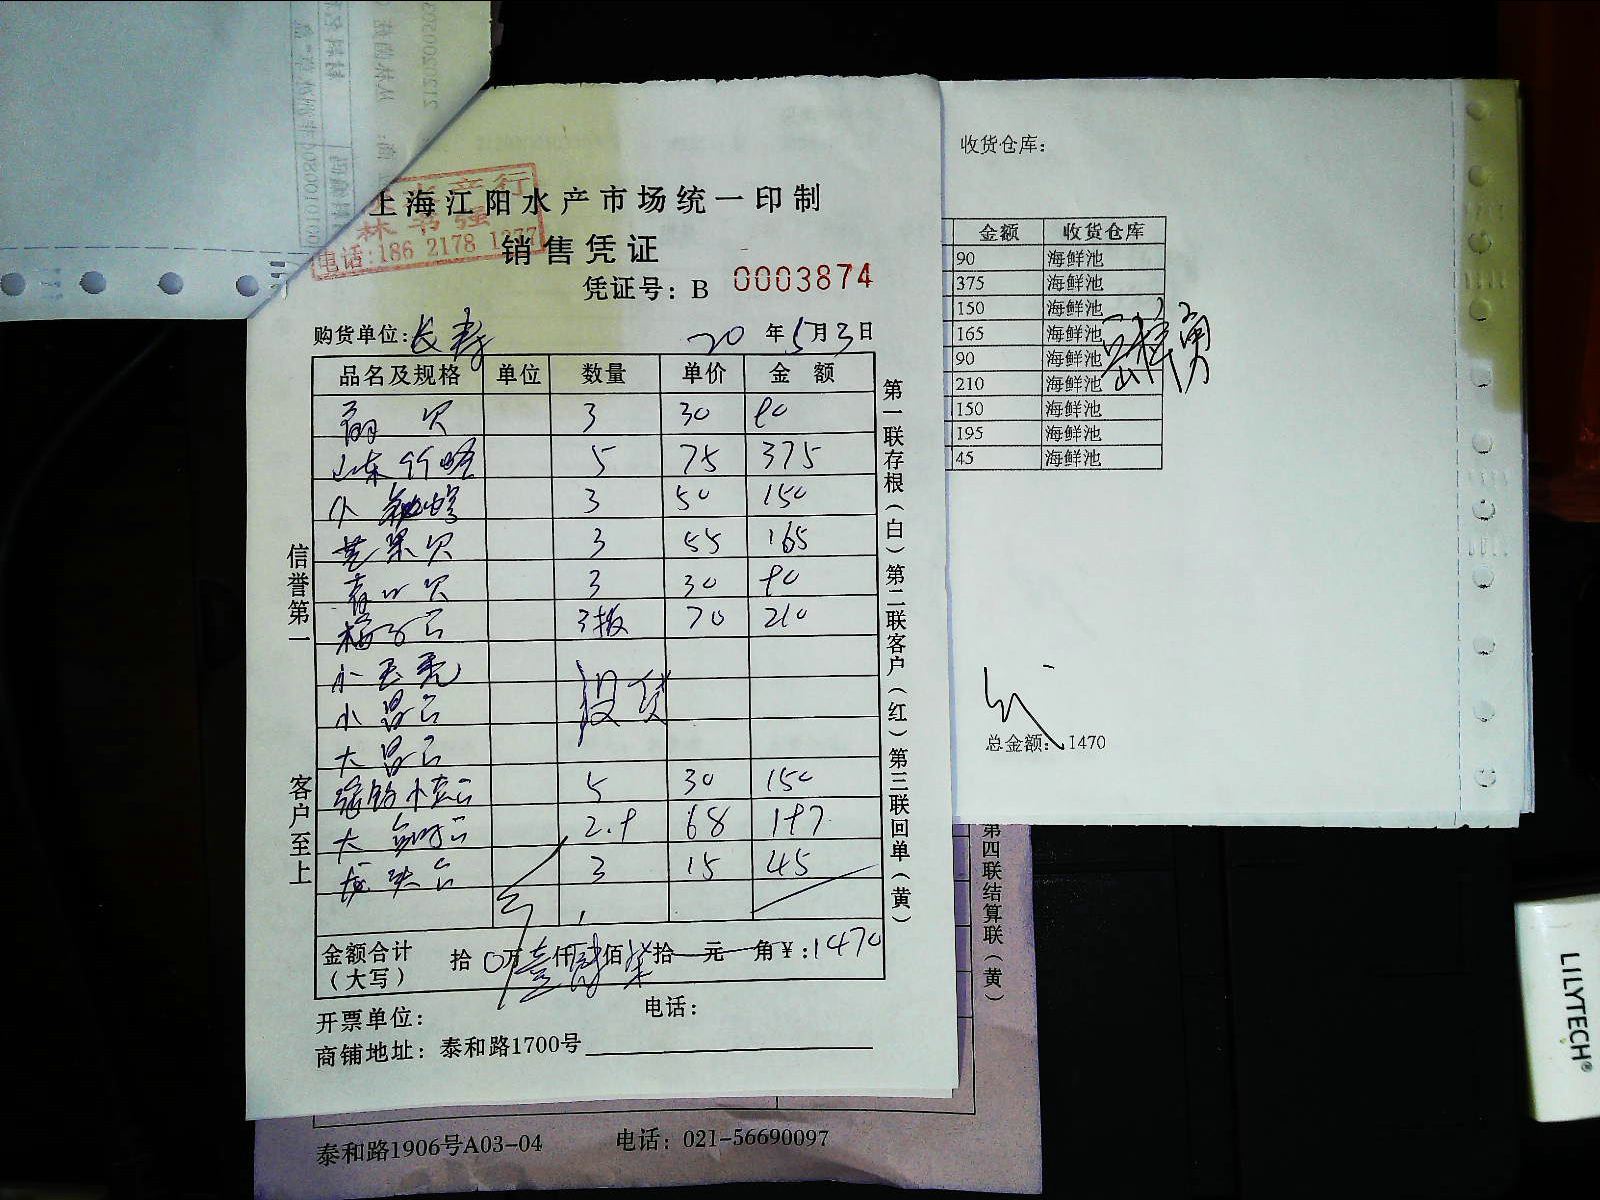 水产行
林书强
电话:186 2178 1277
上海江阳水产市场统一印制
销售凭证
凭证号: B 0003874
购货单位: 长寿 20 年 5 月 3 日
品名及规格 单位 数量 单价 金 额
扇贝 3 30 90
山东竹蛏 5 75 375
小 3 50 150
芒果贝 3 55 165
青口贝 3 30 90
梅子 3板 70 210
小
小
大
没货
5 30 150
大 2.9 68 197
龙头 3 15 45
金额合计
(大写)
拾 0万 壹仟 肆佰 柒拾 元 角 ¥:1470
开票单位:
电话:
商铺地址: 泰和路1700号
信誉第一
客户至上
第一联存根(白)第二联客户(红)第三联回单(黄)
收货仓库:
金额 收货仓库
90 海鲜池
375 海鲜池
150 海鲜池
165 海鲜池
90 海鲜池
210 海鲜池
150 海鲜池
195 海鲜池
45 海鲜池
总金额: 1470
第四联结算联(黄)
泰和路1906号A03-04 电话: 021-56690097
LILYTECH®